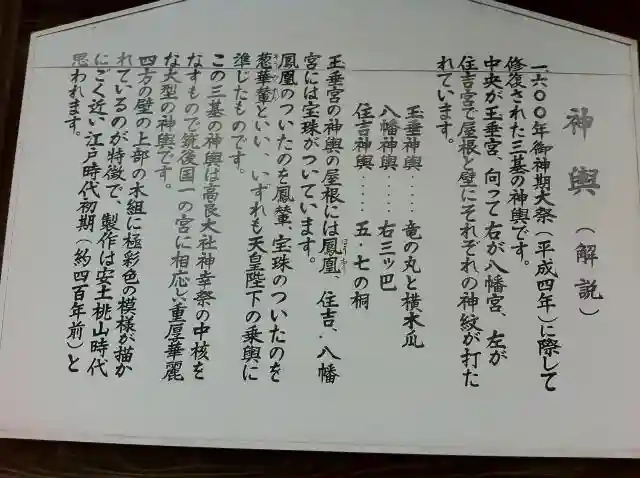 神輿（解説）
一六〇〇年御神期大祭（平成四年）に際して
修復された三基の神輿です。
中央が玉垂宮、向って右が八幡宮、左が
住吉宮で屋根と壁にそれぞれの神紋が打た
れています。
玉垂神輿……竜の丸と横木瓜
八幡神輿……右三ッ巴
住吉神輿……五・七の桐
玉垂宮の神輿の屋根には鳳凰、住吉、八幡
宮には宝珠がついています。
鳳凰のついたのを鳳輦、宝珠のついたのを
葱華輦といい、いずれも天皇陛下の乗輿に
準じたものです。
この三基の神輿は高良大社神幸祭の中核を
なすもので筑後国一の宮に相応しい重厚華麗
な大型の神輿です。
四方の壁の上部の木組に極彩色の模様が描か
れているのが特徴で、製作は安土桃山時代
にごく近い江戸時代初期（約四百年前）と
思われます。